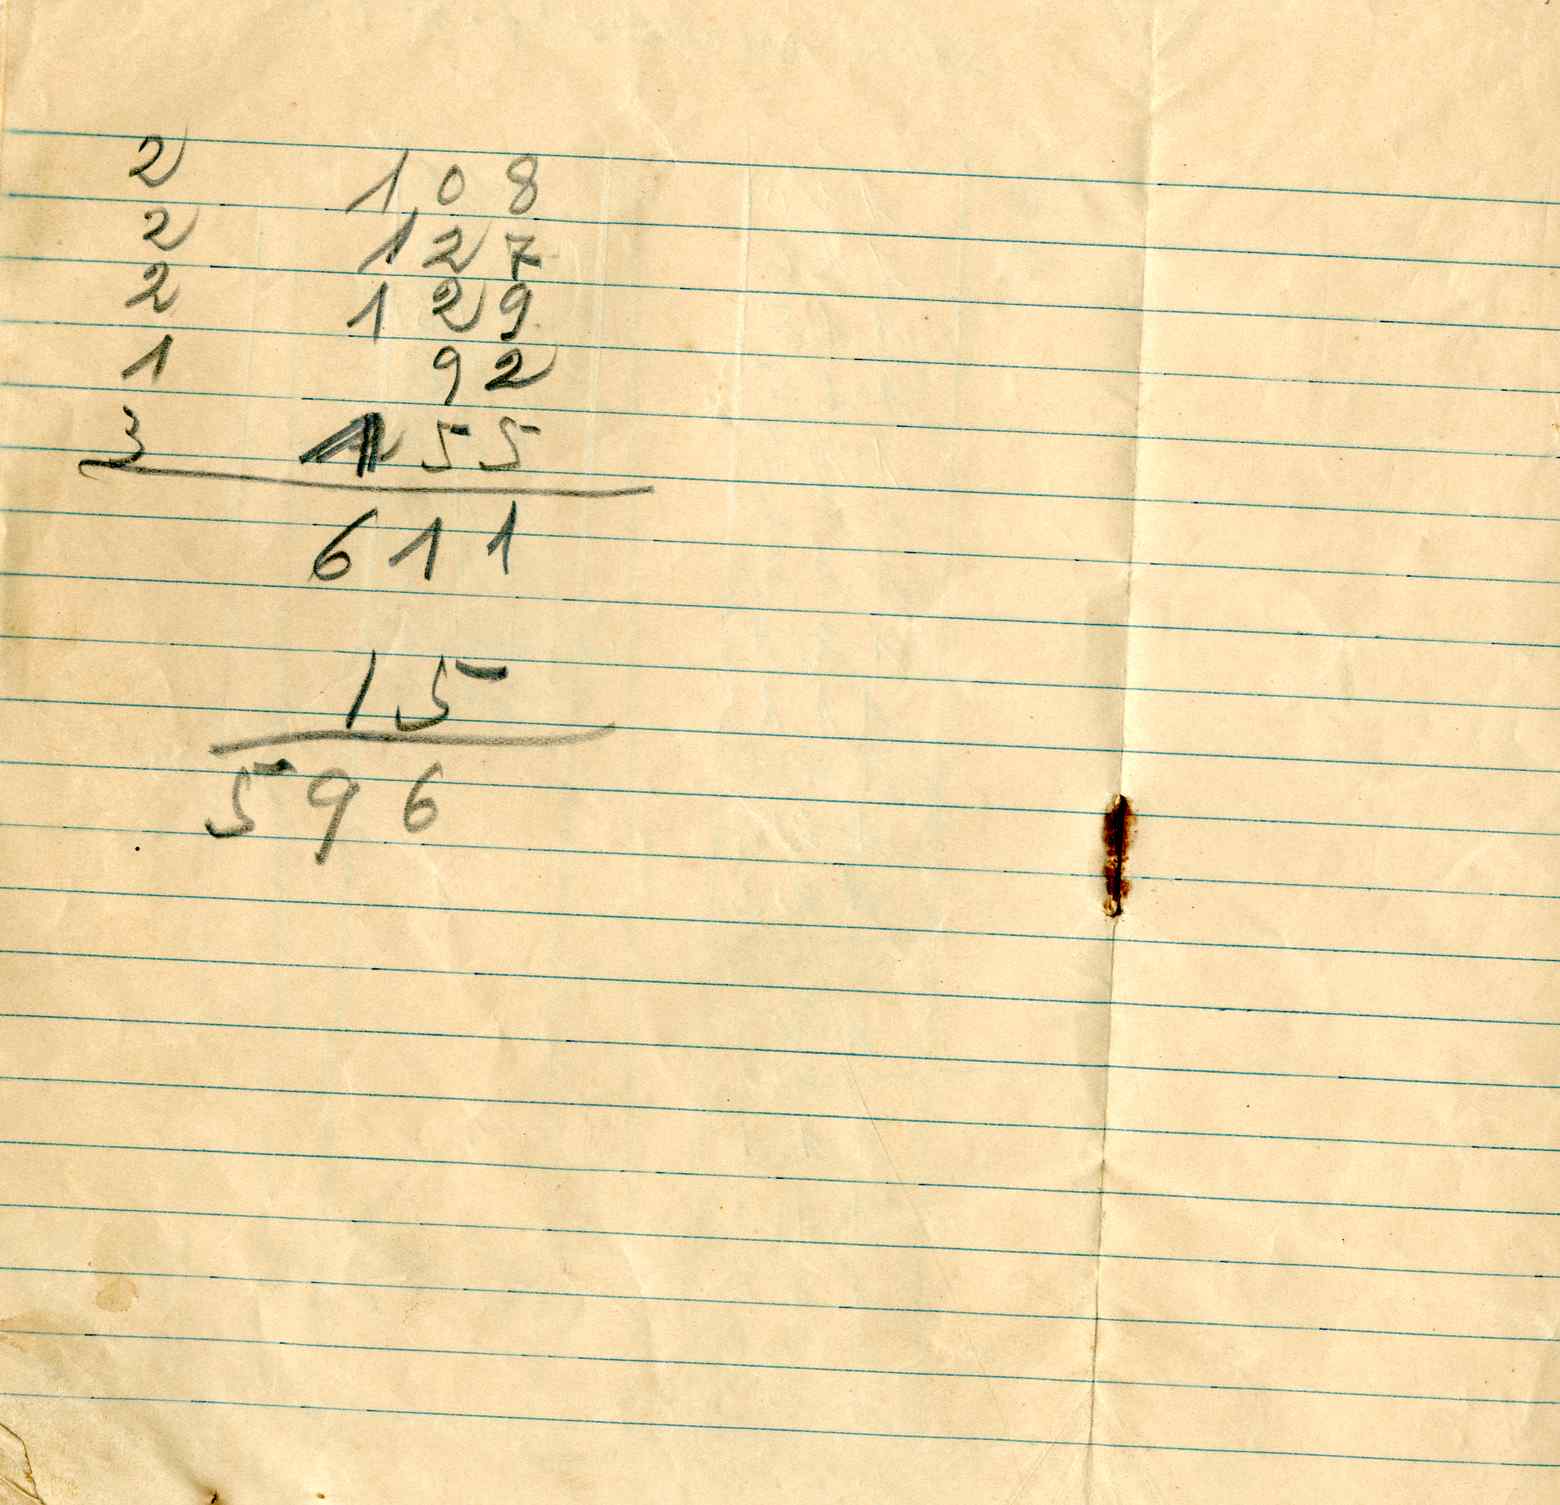 2 108
2 127
2 129
1 92
3 155
611
15
596